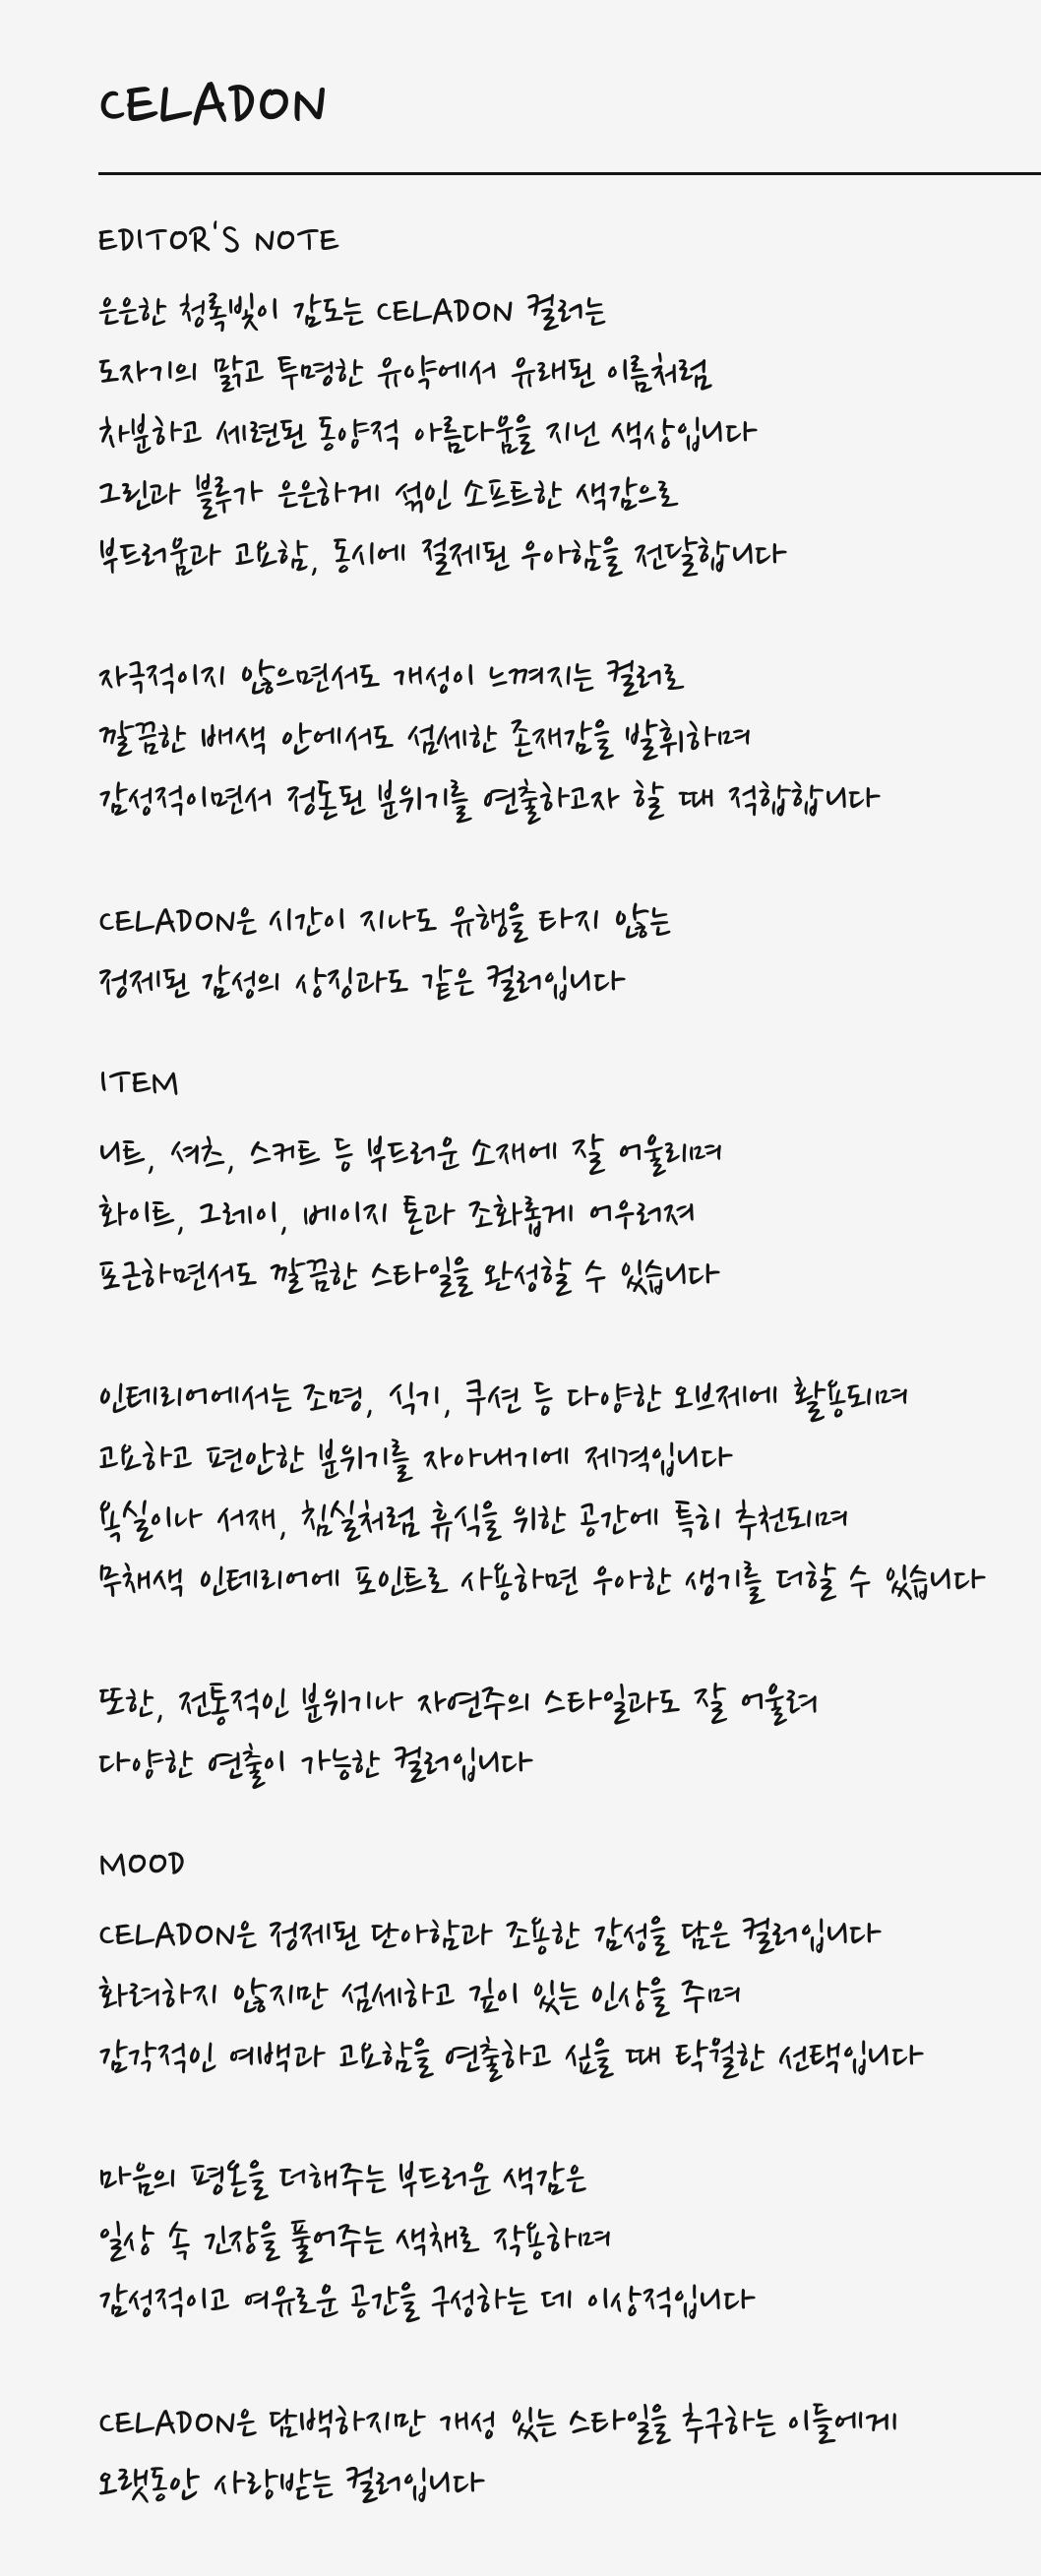 CELADON
EDITOR'S NOTE
은은한 청록빛이 감도는 CELADON 컬러는
도자기의 맑고 투명한 유약에서 유래된 이름처럼
차분하고 세련된 동양적 아름다움을 지닌 색상입니다
그린과 블루가 은은하게 섞인 소프트한 색감으로
부드러움과 고요함, 동시에 절제된 우아함을 전달합니다
자극적이지 않으면서도 개성이 느껴지는 컬러로
깔끔한 배색 안에서도 섬세한 존재감을 발휘하며
감성적이면서 정돈된 분위기를 연출하고자 할 때 적합합니다
CELADON은 시간이 지나도 유행을 타지 않는
정제된 감성의 상징과도 같은 컬러입니다
ITEM
니트, 셔츠, 스커트 등 부드러운 소재에 잘 어울리며
화이트, 그레이, 베이지 톤과 조화롭게 어우러져
포근하면서도 깔끔한 스타일을 완성할 수 있습니다
인테리어에서는 조명, 식기, 쿠션 등 다양한 오브제에 활용되며
고요하고 편안한 분위기를 자아내기에 제격입니다
욕실이나 서재, 침실처럼 휴식을 위한 공간에 특히 추천되며
무채색 인테리어에 포인트로 사용하면 우아한 생기를 더할 수 있습니다
또한, 전통적인 분위기나 자연주의 스타일과도 잘 어울려
다양한 연출이 가능한 컬러입니다
MOOD
CELADON은 정제된 단아함과 조용한 감성을 담은 컬러입니다
화려하지 않지만 섬세하고 깊이 있는 인상을 주며
감각적인 여백과 고요함을 연출하고 싶을 때 탁월한 선택입니다
마음의 평온을 더해주는 부드러운 색감은
일상 속 긴장을 풀어주는 색채로 작용하며
감성적이고 여유로운 공간을 구성하는 데 이상적입니다
CELADON은 담백하지만 개성 있는 스타일을 추구하는 이들에게
오랫동안 사랑받는 컬러입니다